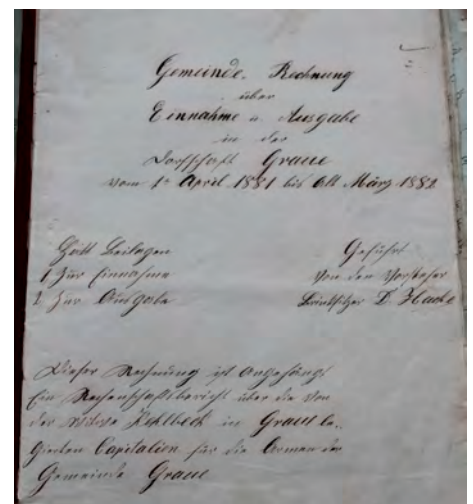 Gemeinde-Rechnung
über
Einnahme u. Ausgabe
in der
Dorfschaft Graue
vom 1t April 1881 bis ult März 1882
Hat Beilagen
1 Zur Einnahme
2 Zur Ausgabe
Geführt
von dem Vorsteher
Brinksitzer D. Hache
Dieser Rechnung ist angehängt
Ein Rechenschaftsbericht über die von
der Witwe Kohlbeck in Graue be-
gierten Capitalien für die Armen der
Gemeinde Graue